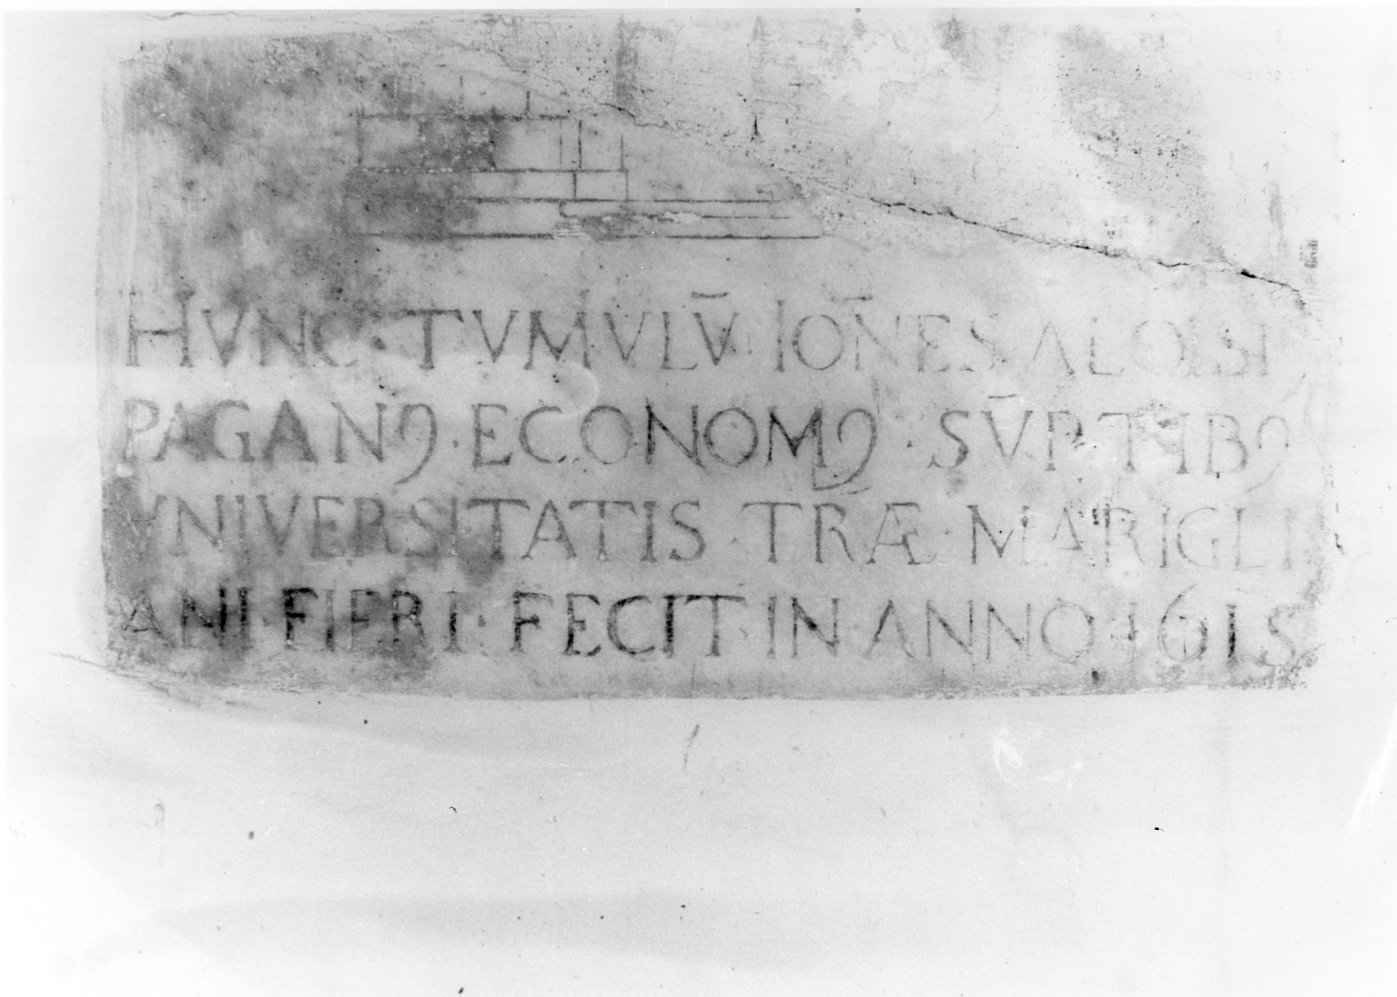 HVNC · TVMVLV̄ IOÑES ALOISIꝰ
PAGANꝰ · ECONOMꝰ · SV̄PTIBꝰ
VNIVERSITATIS · TRÆ · MARIGLI
ANI · FIERI · FECIT · IN ANNO · 1615